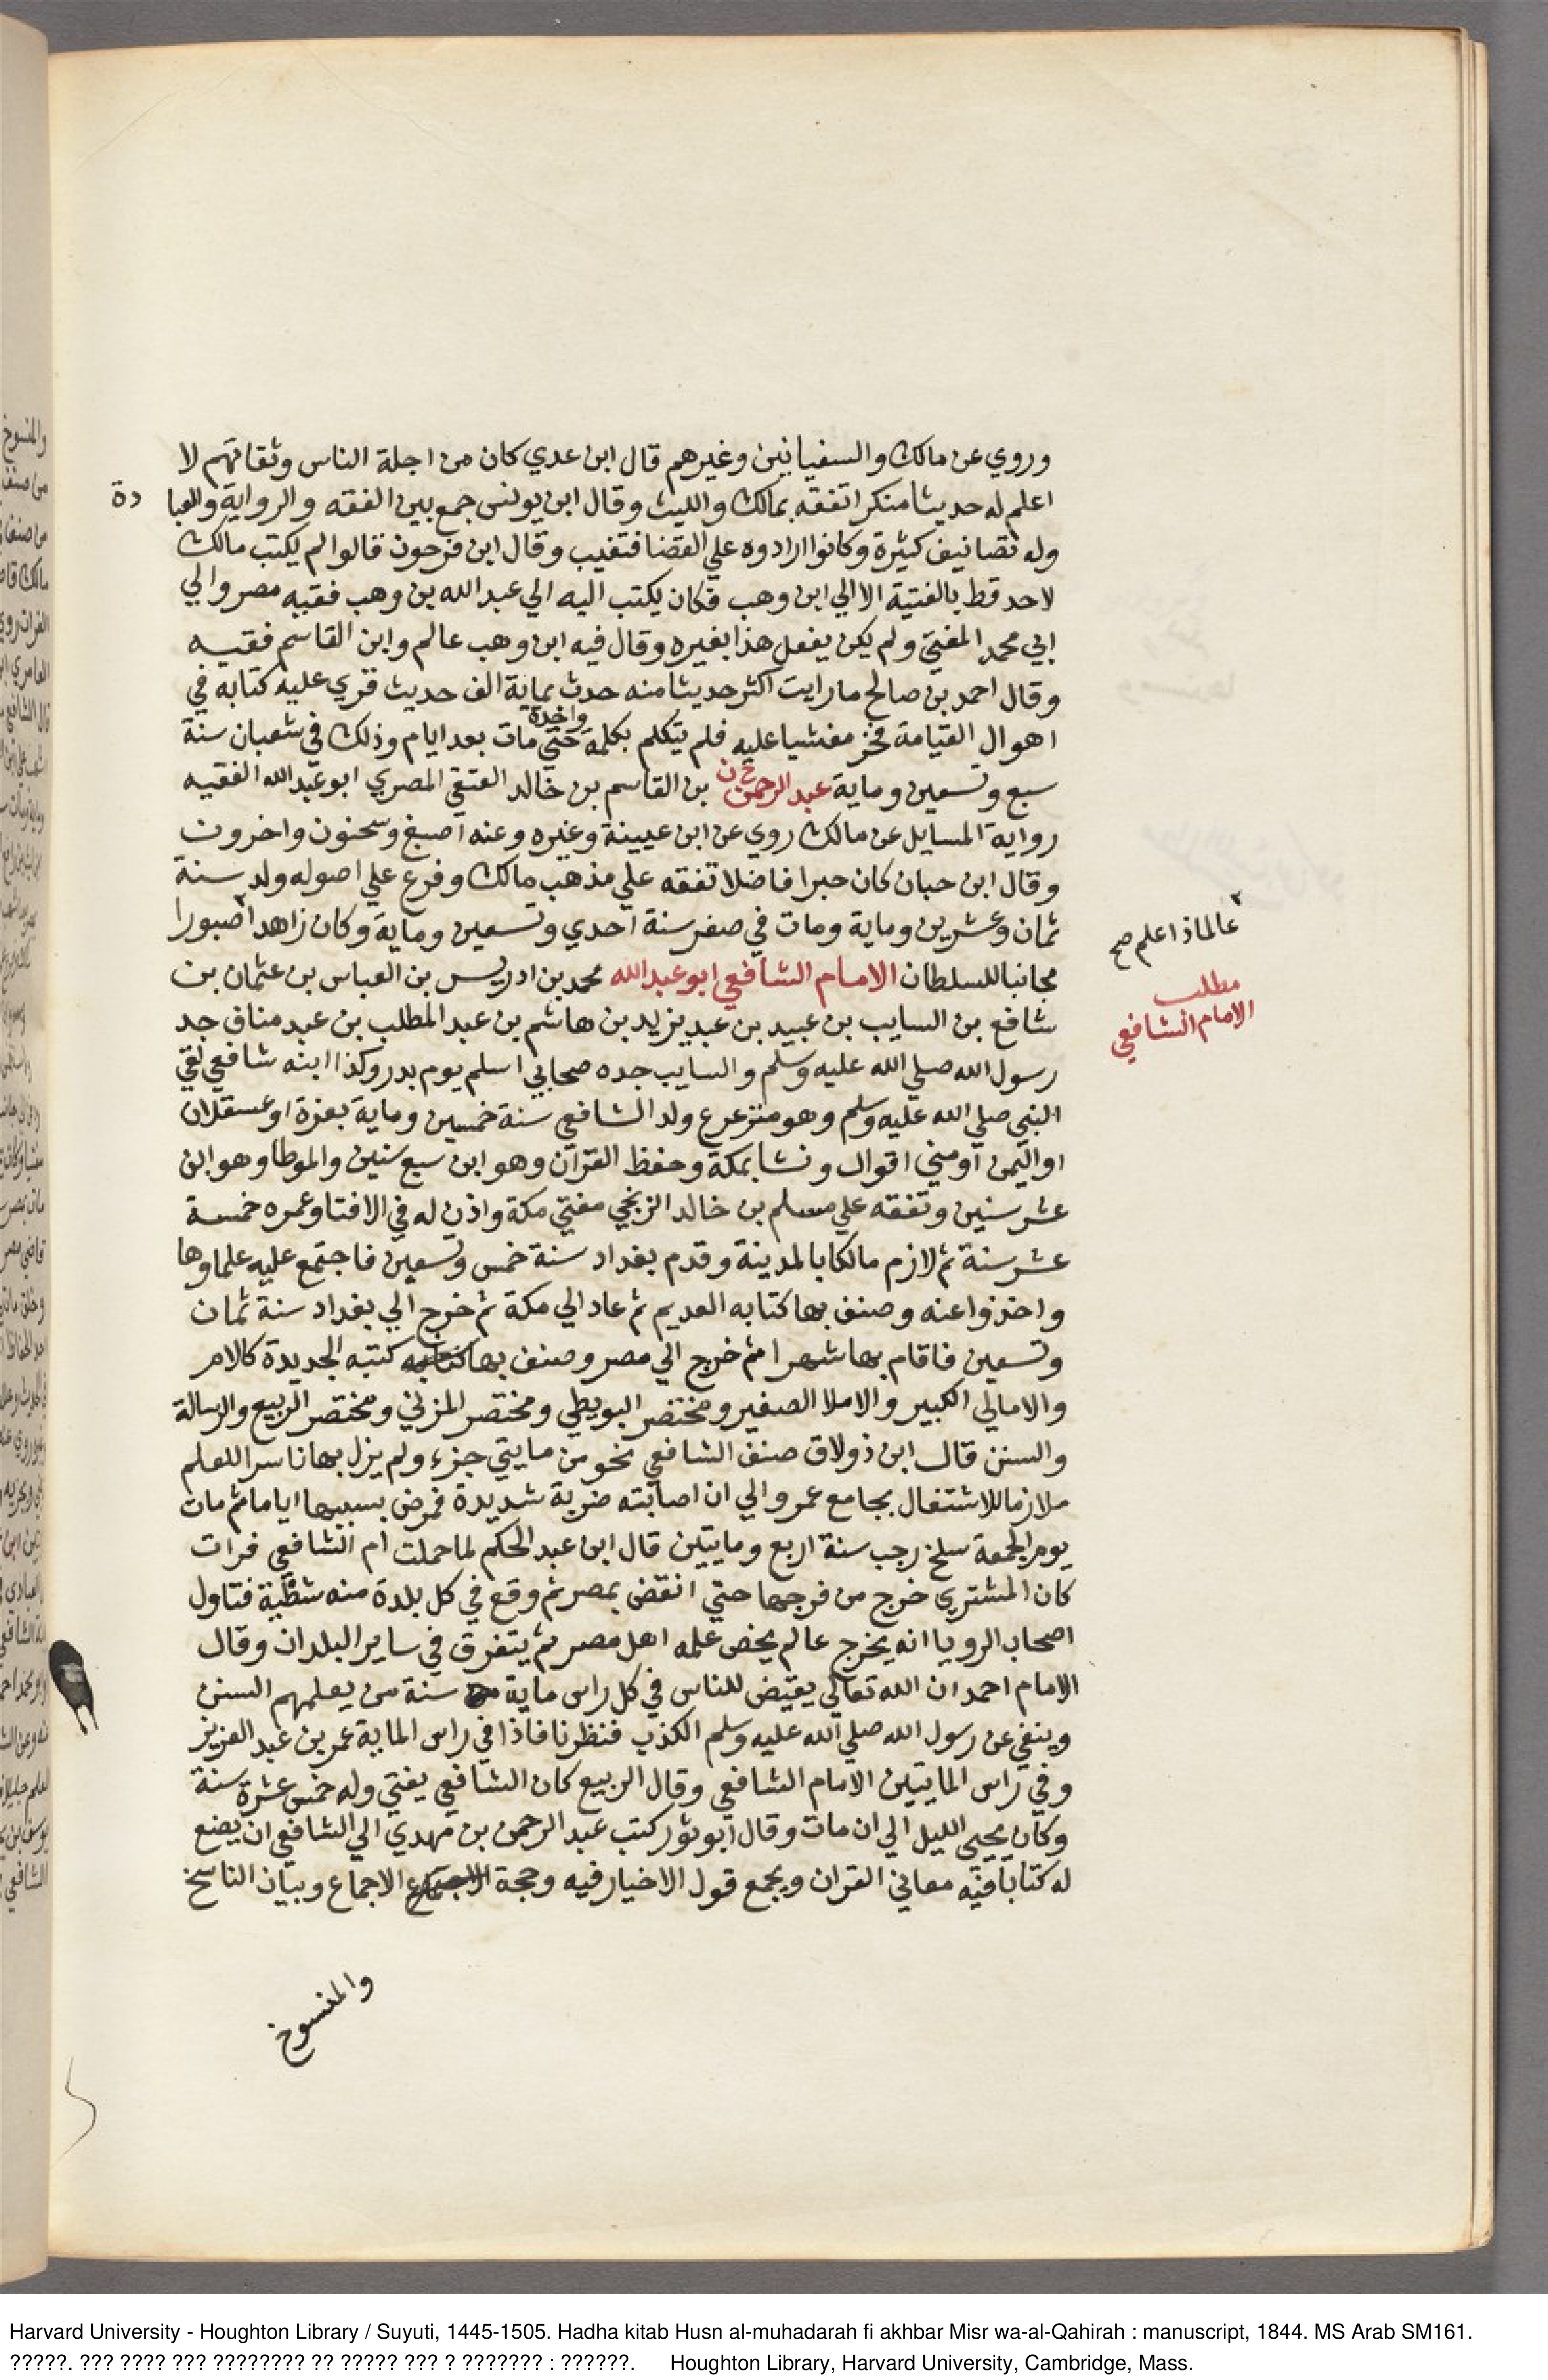 وروي عن مالك والسفيانين وغيرهم قال ابن عدي كان من اجلة الناس وثقاتهم لا
اعلم له حديثا منكرا تفقه بمالك والليث وقال ابن يونس جمع بين الفقه والرواية والعبا دة
وله تصانيف كثيرة وكانوا ارادوه علي القضا فتغيب وقال ابن فرحون قالوا لم يكتب مالك
لاحد قط بالفتية الا الي ابن وهب فكان يكتب اليه الي عبد الله بن وهب فقيه مصر والي
ابي محمد المفتي ولم يكن يفعل هذا بغيره وقال فيه ابن وهب عالم وابن القاسم فقيه
وقال احمد بن صالح ما رايت اكثر حديثا منه حدث بماية الف حديث قري عليه كتابه في
اهوال القيامة فخر مغشيا عليه فلم يتكلم بكلمة واحدة حتي مات بعد ايام وذلك في شعبان سنة
سبع وتسعين وماية عبد الرحمن بن القاسم بن خالد العتقي المصري ابو عبد الله الفقيه
رواية المسايل عن مالك روي عن ابن عيينة وغيره وعنه اصبغ وسحنون واخرون
وقال ابن حبان كان حبرا فاضلا تفقه علي مذهب مالك وفرع علي اصوله ولد سنة
ثمان وعشرين وماية ومات في صفر سنة احدي وتسعين وماية وكان زاهدا صبورا
مجانبا للسلطان الامام الشافعي ابو عبد الله محمد بن ادريس بن العباس بن عثمان بن
شافع بن السايب بن عبيد بن عبد يزيد بن هاشم بن عبد المطلب بن عبد مناف جد
رسول الله صلي الله عليه وسلم والسايب جده صحابي اسلم يوم بدر وكذا ابنه شافع لقي
النبي صلي الله عليه وسلم وهو متزعرع ولد الشافعي سنة خمسين وماية بغزة او عسقلان
او اليمن او مني اقوال ونشا بمكة وحفظ القرآن وهو ابن سبع سنين والموطا وهو ابن
عشر سنين وتفقه علي مسلم بن خالد الزنجي مفتي مكة واذن له في الافتا وعمره خمسة
عشر سنة ثم لازم مالكا بالمدينة وقدم بغداد سنة خمس وتسعين فاجتمع عليه علماوها
واخذوا عنه وصنف بها كتابه العديم ثم عاد الي مكة ثم خرج الي بغداد سنة ثمان
وتسعين فاقام بها شهرا ثم خرج الي مصر وصنف بها كتبه الجديدة كالام
والامالي الكبير والاملا الصغير ومختصر البويطي ومختصر المزني ومختصر الربيع والرسالة
والسنن قال ابن ذولاق صنف الشافعي نحو من مايتي جزء ولم يزل بها ناسرا للعلم
ملازما للاشتغال بجامع عمرو الي ان اصابته ضربة شديدة فمرض بسببها اياما ثم مات
يوم الجمعة سلخ رجب سنة اربع ومايتين قال ابن عبد الحكم لما حملت ام الشافعي فرات
كان المشتري خرج من فرجها حتي انقض بمصر ثم وقع في كل بلدة منه شظية فتاول
اصحاب الرويا انه يخرج عالم يخص علمه اهل مصر ثم يتفرق في ساير البلدان وقال
الامام احمد ان الله تعالي يقيض للناس في كل راس ماية سنة من يعلمهم السنن
وينفي عن رسول الله صلي الله عليه وسلم الكذب فنظرنا فاذا في راس الماية عمر بن عبد العزيز
وفي راس المايتين الامام الشافعي وقال الربيع كان الشافعي يفتي وله خمس عشرة سنة
وكان يحيي الليل الي ان مات وقال ابو ثور كتب عبد الرحمن بن مهدي الي الشافعي ان يضع
له كتابا فيه معاني القران ويجمع قول الاخيار فيه وحجة الاجماع وبيان الناسخ
والمنسوخ
عالما ذا علم صح
مطلب
الامام الشافعي
Harvard University - Houghton Library / Suyuti, 1445-1505. Hadha kitab Husn al-muhadarah fi akhbar Misr wa-al-Qahirah : manuscript, 1844. MS Arab SM161.
?????. ??? ???? ??? ???????? ?? ????? ??? ? ??????? : ??????. Houghton Library, Harvard University, Cambridge, Mass.